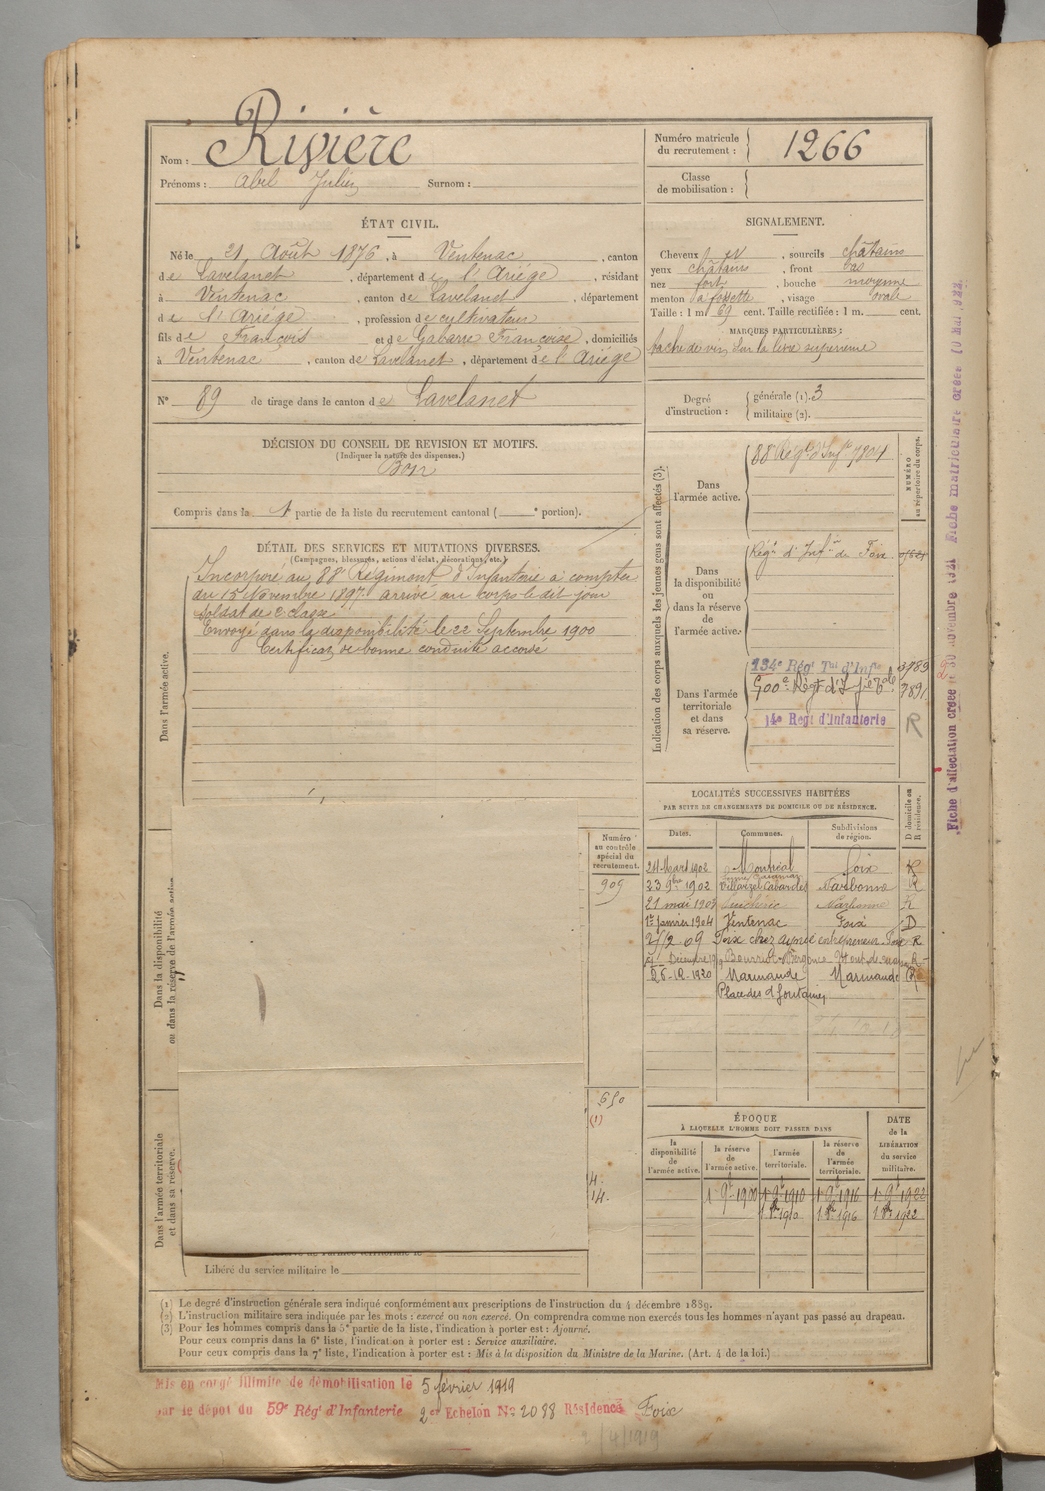 Nom : Rivière
Prénoms : Abel Julien Surnom :
Numéro matricule du recrutement : 1266
Classe de mobilisation :
ÉTAT CIVIL.
Né le 21 Août 1876, à Ventenac, canton
de Lavelanet, département de l'Ariège, résidant
à Ventenac, canton de Lavelanet, département
de l'Ariège, profession de cultivateur
fils de François et de Gabarre Françoise, domiciliés
à Ventenac, canton de Lavelanet, département de l'Ariège
N° 89 de tirage dans le canton de Lavelanet
SIGNALEMENT.
Cheveux et, sourcils châtains
yeux châtains, front bas
nez fort, bouche moyenne
menton à fossette, visage ovale
Taille : 1 m 69 cent. Taille rectifiée : 1 m. cent.
MARQUES PARTICULIÈRES :
tache de vin sur la lèvre supérieure
Degré d'instruction : générale (1). 3
militaire (2).
DÉCISION DU CONSEIL DE REVISION ET MOTIFS.
(Indiquer la nature des dispenses.)
Bon
Compris dans la 1 partie de la liste du recrutement cantonal ( e portion).
DÉTAIL DES SERVICES ET MUTATIONS DIVERSES.
(Campagnes, blessures, actions d'éclat, décorations, etc.)
Dans l'armée active.
Incorporé au 88e Régiment d'Infanterie à compter
du 15 Novembre 1897 arrivé au corps le dit jour
soldat de 2e classe
Envoyé dans la disponibilité le 22 Septembre 1900
Certificat de bonne conduite accordé
Dans la disponibilité
ou dans la réserve de l'armée active
Dans l'armée territoriale
et dans sa réserve.
Numéro au contrôle spécial du recrutement.
909
650
(1)
4.
14.
Libéré du service militaire le
Indication des corps auxquels les jeunes gens sont affectés (3).
NUMÉRO au répertoire du corps.
Dans l'armée active.
88e Régt d'Infie 7804
Dans la disponibilité ou dans la réserve de l'armée active.
Régt d'Infie de Foix
Dans l'armée territoriale et dans sa réserve.
134e Régt Tal d'Infie
7891
14e Régt d'Infanterie R
LOCALITÉS SUCCESSIVES HABITÉES
PAR SUITE DE CHANGEMENTS DE DOMICILE OU DE RÉSIDENCE.
Dates. Communes. Subdivisions de région. D domicile ou R résidence.
24 Mars 1902 Montréal Foix R
23 9bre 1902 Villarzel Cabardès Narbonne R
21 mai 1903 Narbonne R
1er janvier 1904 Ventenac Foix D
Foix chez entrepreneur Foix R
Décembre
26-12-1920 Marmande Marmande R
Place des
ÉPOQUE
À LAQUELLE L'HOMME DOIT PASSER DANS
DATE de la LIBÉRATION du service militaire.
la disponibilité de l'armée active.
la réserve de l'armée active.
l'armée territoriale.
la réserve de l'armée territoriale.
1er 9bre 1900 1er 9bre 1910 1er 9bre 1916 1er 9bre 1922
1. 8bre 1910 1. 8bre 1916 1. 8bre 1922
(1) Le degré d'instruction générale sera indiqué conformément aux prescriptions de l'instruction du 4 décembre 1889.
(2) L'instruction militaire sera indiquée par les mots : exercé ou non exercé. On comprendra comme non exercés tous les hommes n'ayant pas passé au drapeau.
(3) Pour les hommes compris dans la 5e partie de la liste, l'indication à porter est : Ajourné.
Pour ceux compris dans la 6e liste, l'indication à porter est : Service auxiliaire.
Pour ceux compris dans la 7e liste, l'indication à porter est : Mis à la disposition du Ministre de la Marine. (Art. 4 de la loi.)
Mis en congé illimité de démobilisation le 5 février 1919
par le dépôt du 59e Régt d'Infanterie 2e Echelon N° 2088 Résidence Foix
2/4/1919
Fiche d'affectation créée le 30 novembre 1921 Fiche matriculaire créée 10 Mai 1922